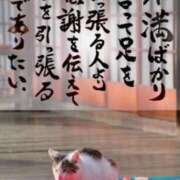 満ばかり
って足を
っ張る人より
感謝を伝えて
を引っ張る
でありたい。